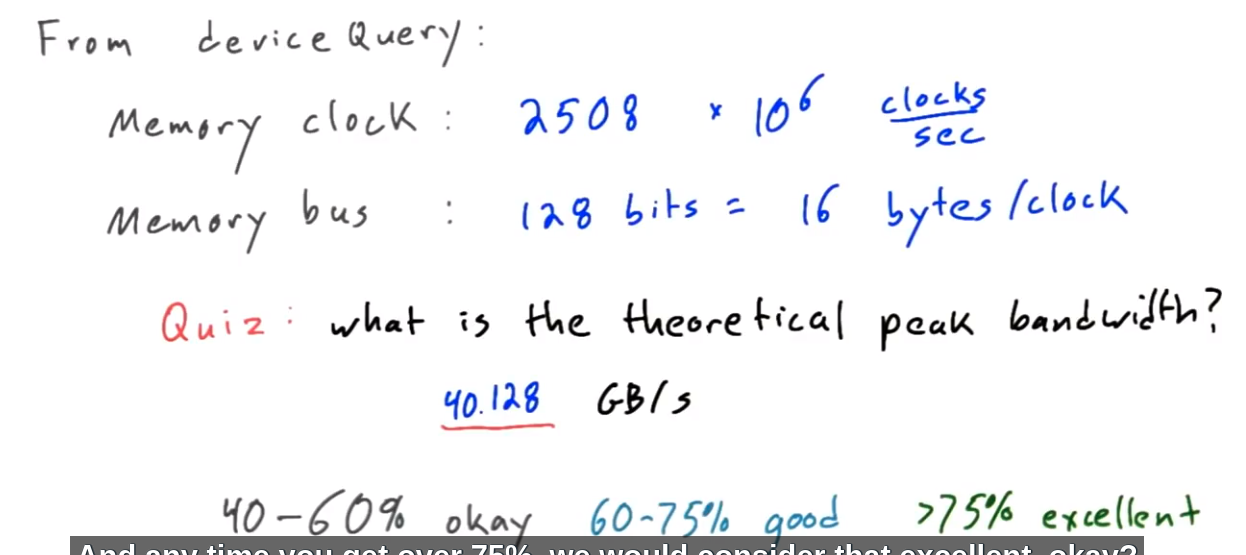 From deviceQuery:
Memory clock : 2508 * 10^6 clocks/sec
Memory bus : 128 bits = 16 bytes/clock
Quiz: what is the theoretical peak bandwidth?
40.128 GB/s
40-60% okay 60-75% good >75% excellent
And any time you get over 75%, we would consider that excellent, okay?